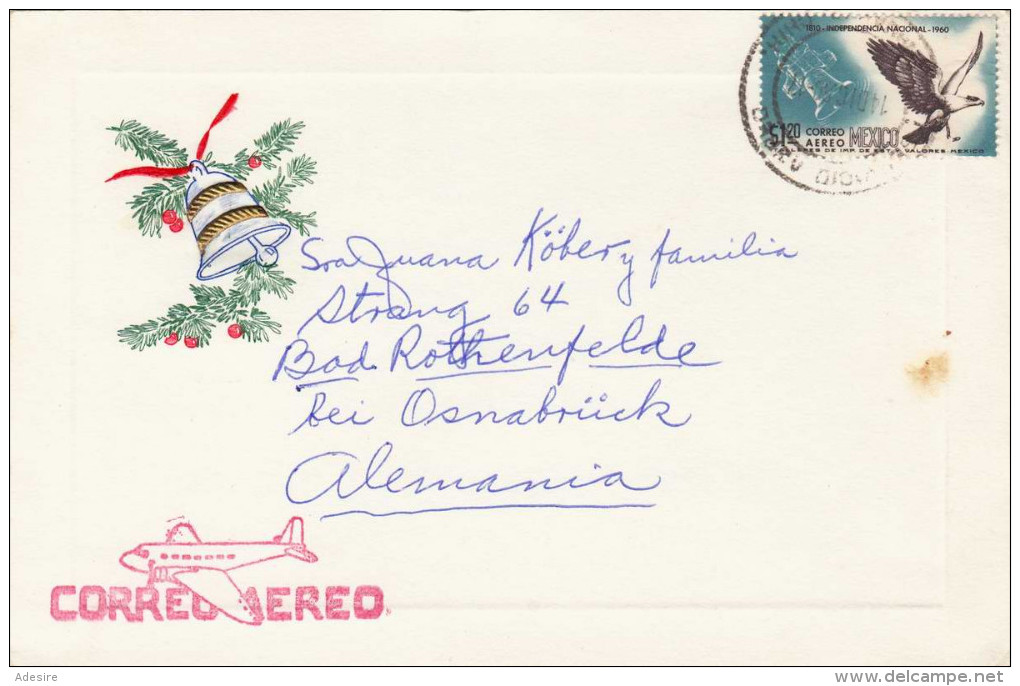 1810-INDEPENDENCIA NACIONAL-1960
$1.20 CORREO AEREO MEXICO
TALLERES DE IMP. DE EST. Y VALORES-MEXICO
Sra Juana Köber y familia
Strang 64
Bad Rothenfelde
bei Osnabrück
Alemania
CORREO AEREO
Adesire
www.delcampe.net